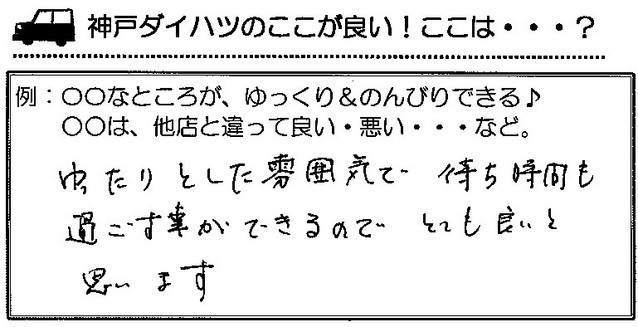 神戸ダイハツのここが良い！ここは・・・？
例：○○なところが、ゆっくり＆のんびりできる♪
○○は、他店と違って良い・悪い・・・など。
ゆったりとした雰囲気で 待ち時間も
過ごす事ができるので とても良いと
思います